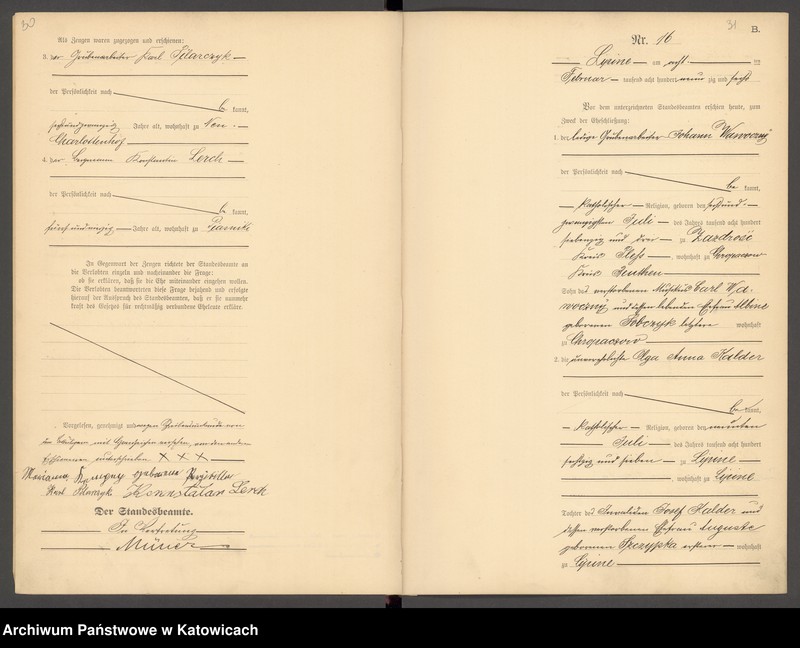 30
Als Zeugen waren zugezogen und erschienen:
3. der Grubenarbeiter Karl
der Persönlichkeit nach
kannt,
sechsundzwanzig Jahre alt, wohnhaft zu Neu-
Charlottenhof
4. der Bergmann Konstantin Lerch
der Persönlichkeit nach
kannt,
Jahre alt, wohnhaft zu Piasniki
In Gegenwart der Zeugen richtete der Standesbeamte an
die Verlobten einzeln und nacheinander die Frage:
ob sie erklären, daß sie die Ehe miteinander eingehen wollen.
Die Verlobten beantworteten diese Frage bejahend und erfolgte
hierauf der Ausspruch des Standesbeamten, daß er sie nunmehr
kraft des Gesetzes für rechtmäßig verbundene Eheleute erkläre.
Vorgelesen, genehmigt und wegen
mit Handzeichen versehen, von den anderen
Erschienenen unterschrieben XXX
geborene
Karl Konnstatan Lerch
Der Standesbeamte.
In Vertretung
31
B.
Nr. 16
Lipine am acht ten
Februar tausend acht hundert neun zig und sechs
Vor dem unterzeichneten Standesbeamten erschien heute, zum
Zweck der Eheschließung:
1. der ledige Grubenarbeiter Johann Wawoczny
der Persönlichkeit nach
be kannt,
katholischer Religion, geboren den sechsund-
zwanzigsten Juli des Jahres tausend acht hundert
siebenzig und drei zu Zazdrosc
Kreis Pless, wohnhaft zu Chropaczow
Kreis Beuthen
Sohn des verstorbenen Musikus Carl Wa-
woczny und dessen lebenden Ehefrau Albine
geborenen Sobczyk letztere wohnhaft
zu Chropaczow
2. die unverehelichte Olga Anna Halder
der Persönlichkeit nach
be kannt,
katholischer Religion, geboren den neunten
Juli des Jahres tausend acht hundert
sechzig und sieben zu Lipine
, wohnhaft zu Lipine
Tochter des Invaliden Josef Halder und
dessen verstorbenen Ehefrau Auguste
geborenen Szczypka ersterer wohnhaft
zu Lipine
Archiwum Państwowe w Katowicach